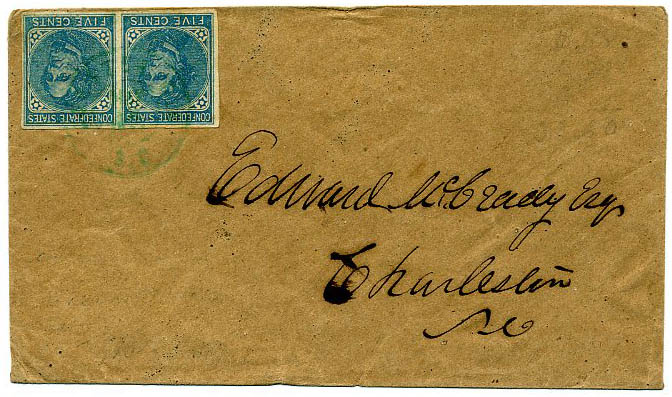 FIVE CENTS FIVE CENTS
CONFEDERATE STATES CONFEDERATE STATES
S C
Edward McCrady Esq
Charleston
So Co